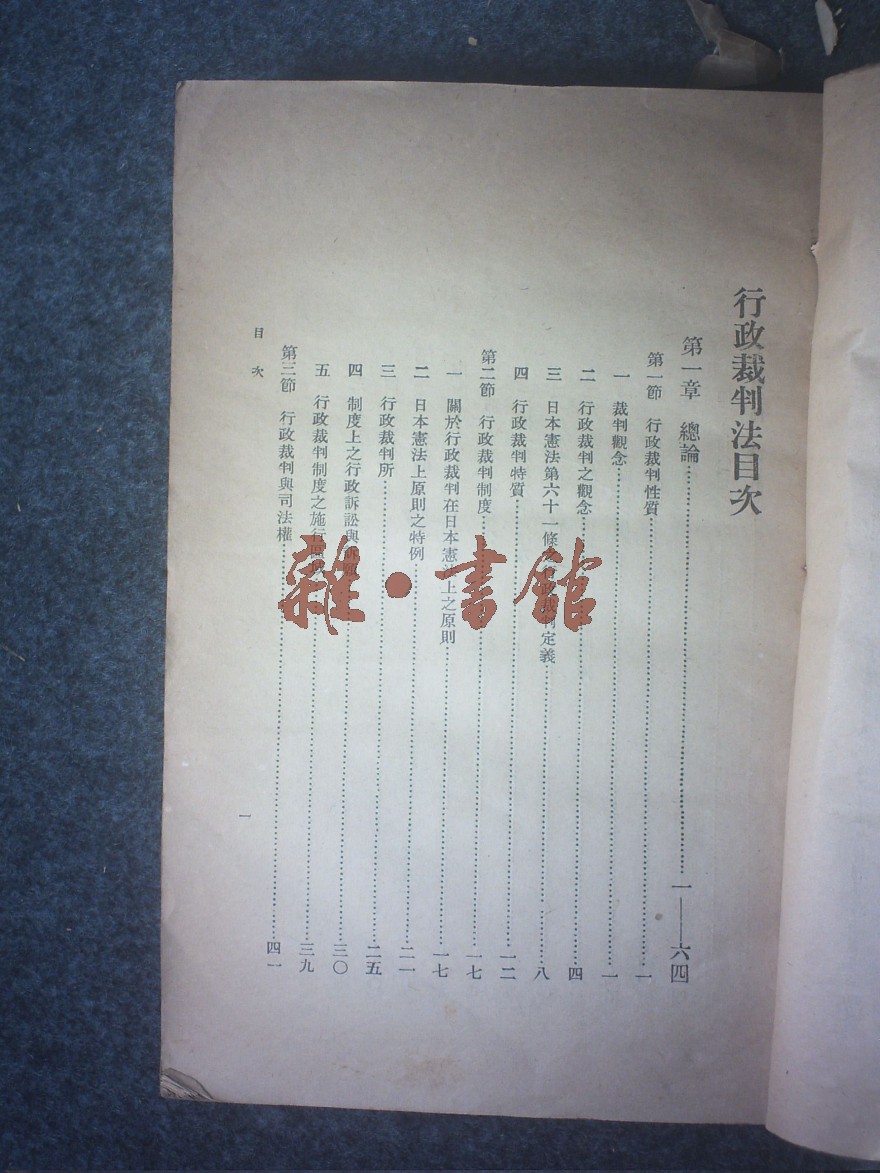 行政裁判法目次
第一章 總論……一——六四
第一節 行政裁判性質……一
一 裁判觀念……一
二 行政裁判之觀念……四
三 日本憲法第六十一條 定義……八
四 行政裁判特質……一二
第二節 行政裁判制度……一七
一 關於行政裁判在日本憲法上之原則……一七
二 日本憲法上原則之特例……二一
三 行政裁判所……二五
四 制度上之行政訴訟與……三〇
五 行政裁判制度之施行……三九
第三節 行政裁判與司法權……四一
目次
一
雜·書館